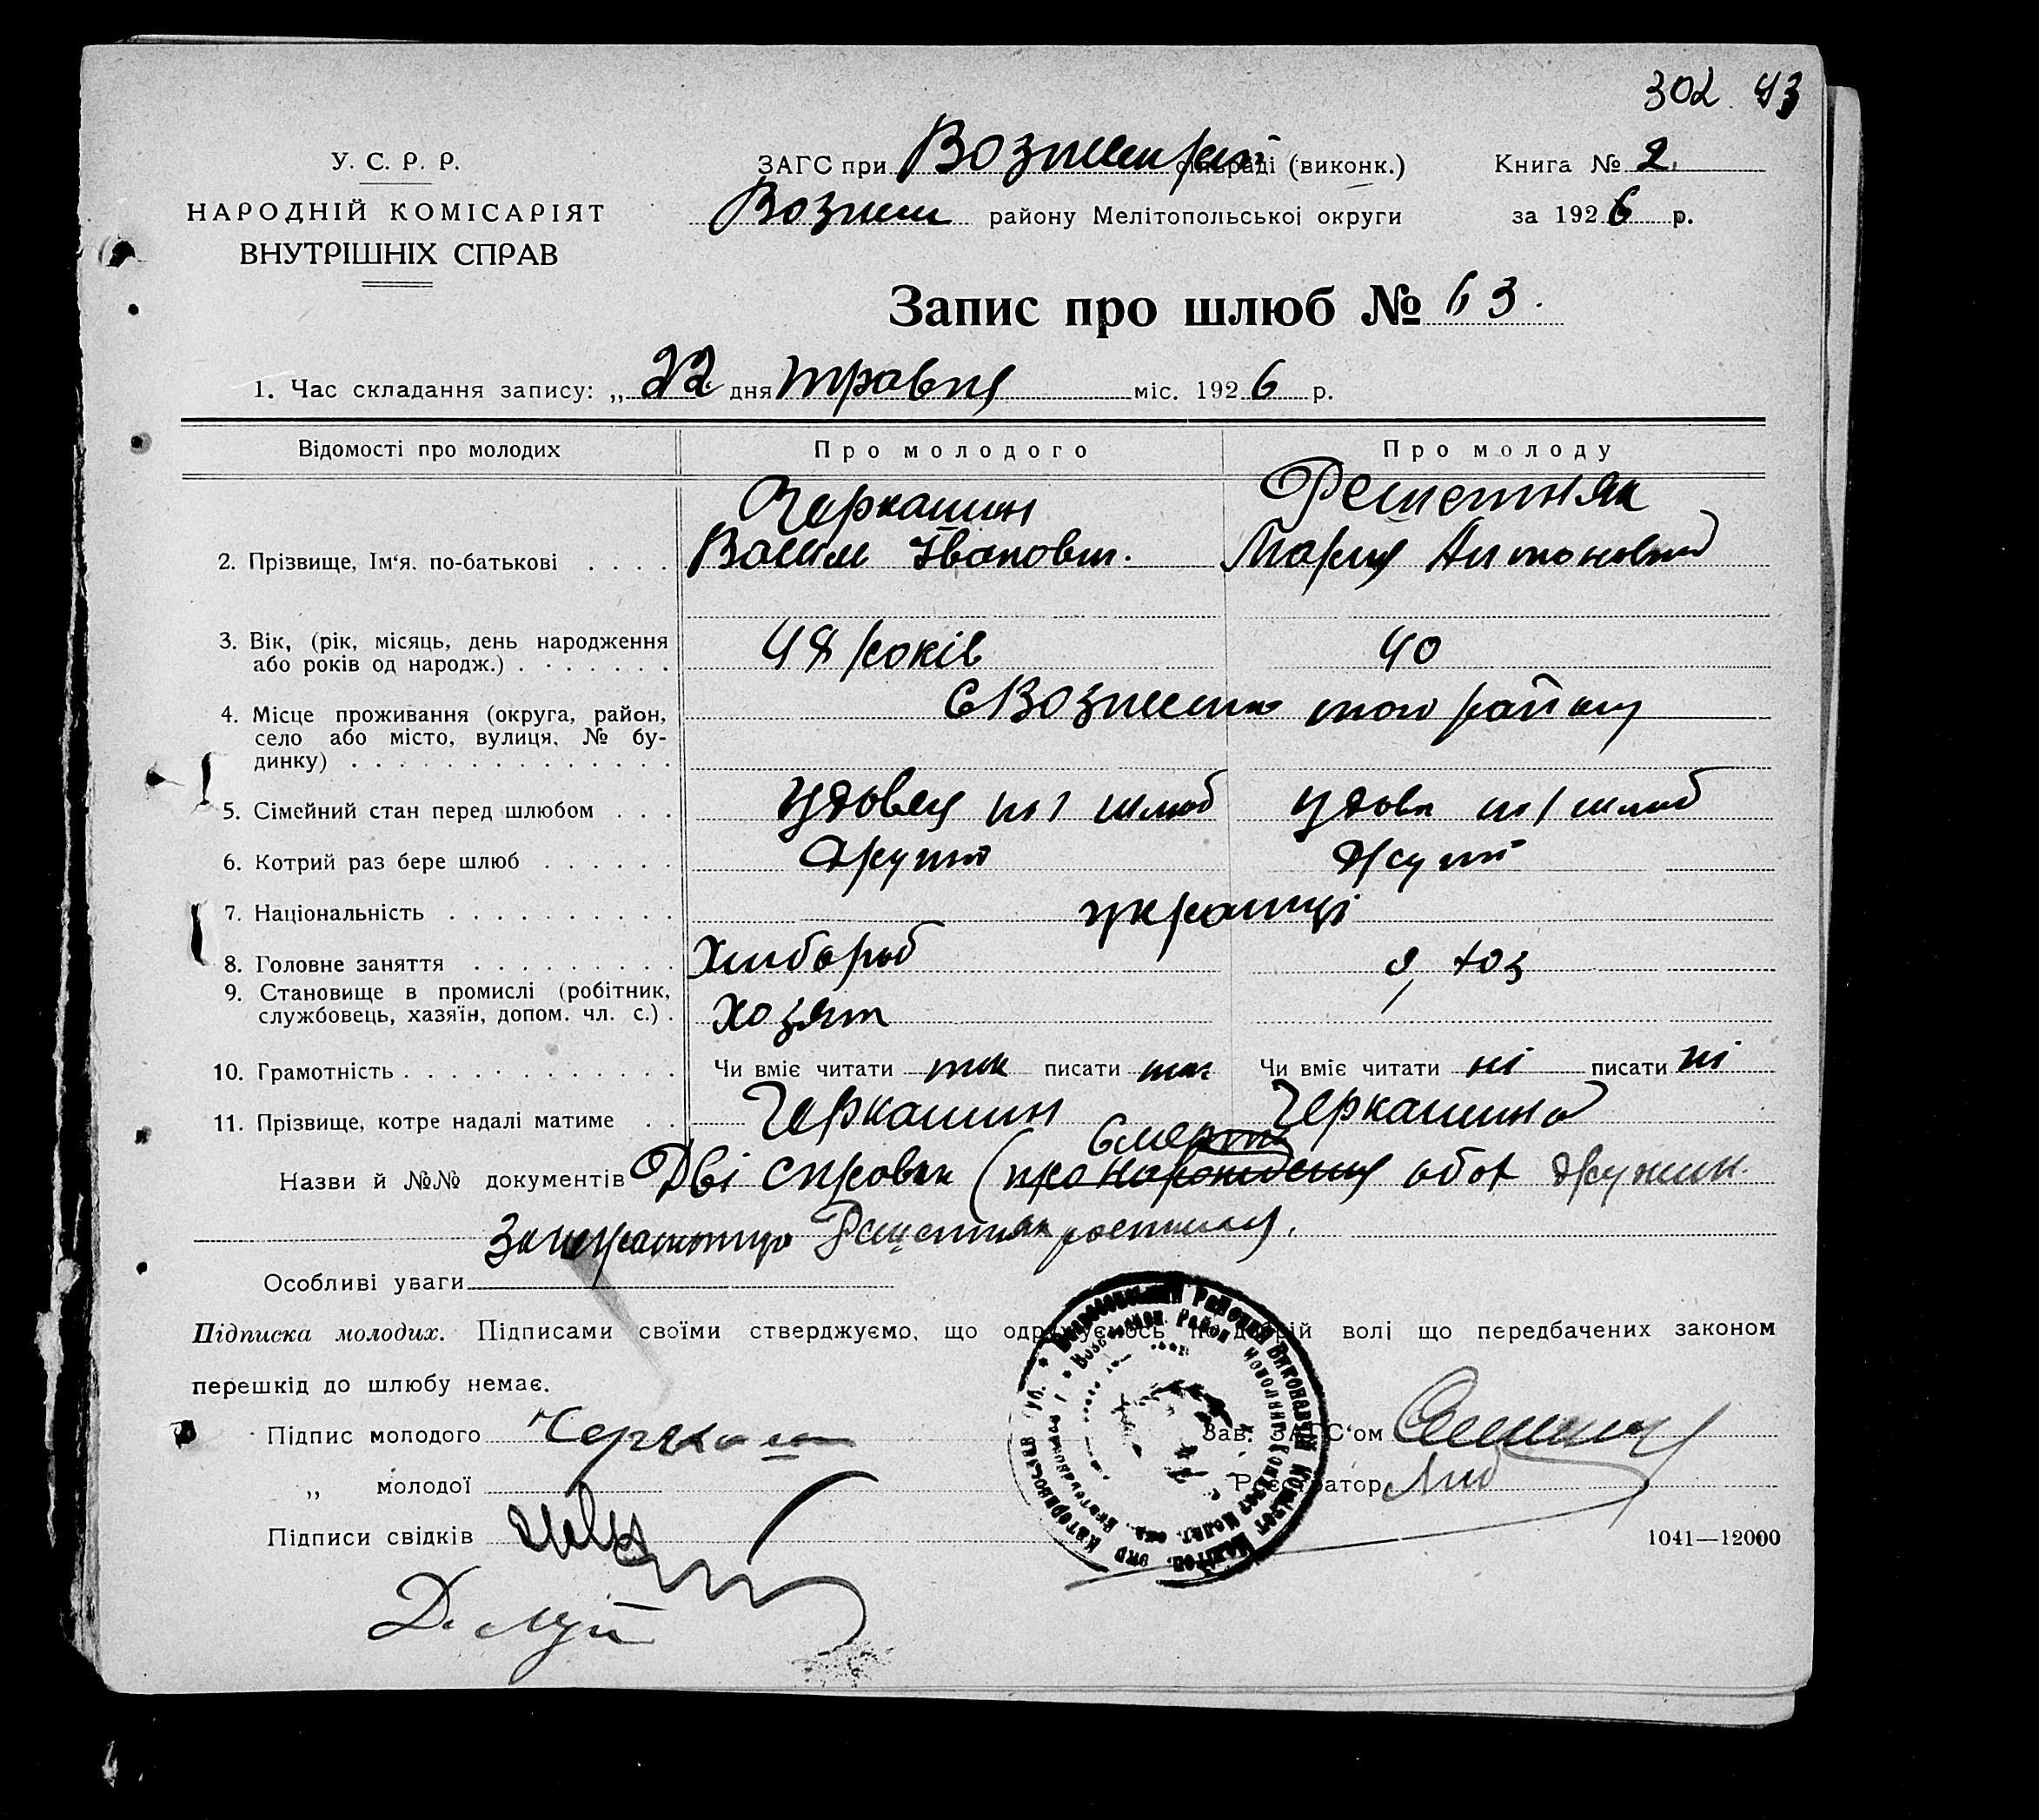 302 93
У. С. Р. Р.
НАРОДНІЙ КОМІСАРІЯТ
ВНУТРІШНІХ СПРАВ
ЗАГС при сільраді (виконк.)
району Мелітопольськоі округи
Книга № 2
за 1926 р.
Запис про шлюб № 63.
1. Час складання запису: „ 22 дня травня міс. 1926 р.
Відомості про молодих
Про молодого
Про молоду
Черкашин
Решетняк
2. Прізвище, Ім‘я. по-батькові . . . .
Іванович.
Мария Антоновна
3. Вік, (рік, місяць, день народження
або років од народж.) . . . . . . .
48 років
40
4. Місце проживання (округа, район,
село або місто, вулиця, № бу-
динку) . . . . . . . . . . . . . .
того району
5. Сімейний стан перед шлюбом . . .
удовец по 1 шлюб
удова по 1 шлюб
6. Котрий раз бере шлюб . . . . . .
другий
другий
7. Національність . . . . . . . . . .
українці
8. Головне заняття . . . . . . . . .
Хлібороб
9. Становище в промислі (робітник,
службовець, хазяїн, допом. чл. с.) .
Хозяїн
10. Грамотність . . . . . . . . . . . .
Чи вміє читати так писати так
Чи вміє читати ні писати ні
11. Прізвище, котре надалі матиме . .
Черкашин
Черкашина
смерть
Назви й №№ документів Дві справки (про нарождения обох дружин
Решетняк
Особливі уваги
Підписка молодих. Підписами своїми стверджуємо, що одружуємось по добрій волі що передбачених законом
перешкід до шлюбу немає.
Підпис молодого Черкаш
„ молодої
Підписи свідків
Зав. ЗАГС‘ом
Реєстратор
1041—12000